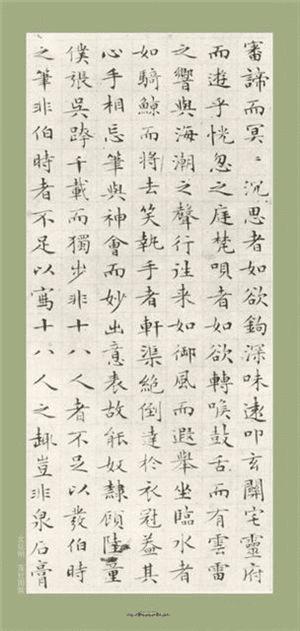 審諦而冥〻沉思者如欲鉤深味遠叩玄關宅靈府
而遊乎恍忽之庭梵唄者如欲轉喉鼓舌而有雲雷
之響與海潮之聲行往来如御風而遐舉坐臨水者
如騎鯨而將去笑執手者軒渠絶倒達於衣冠葢其
心手相忘筆與神會而妙出意表故能奴隸顧陸童
僕張吳踔千載而獨步非十八人者不足以發伯時
之筆非伯時者不足以寫十八人之趣豈非泉石膏